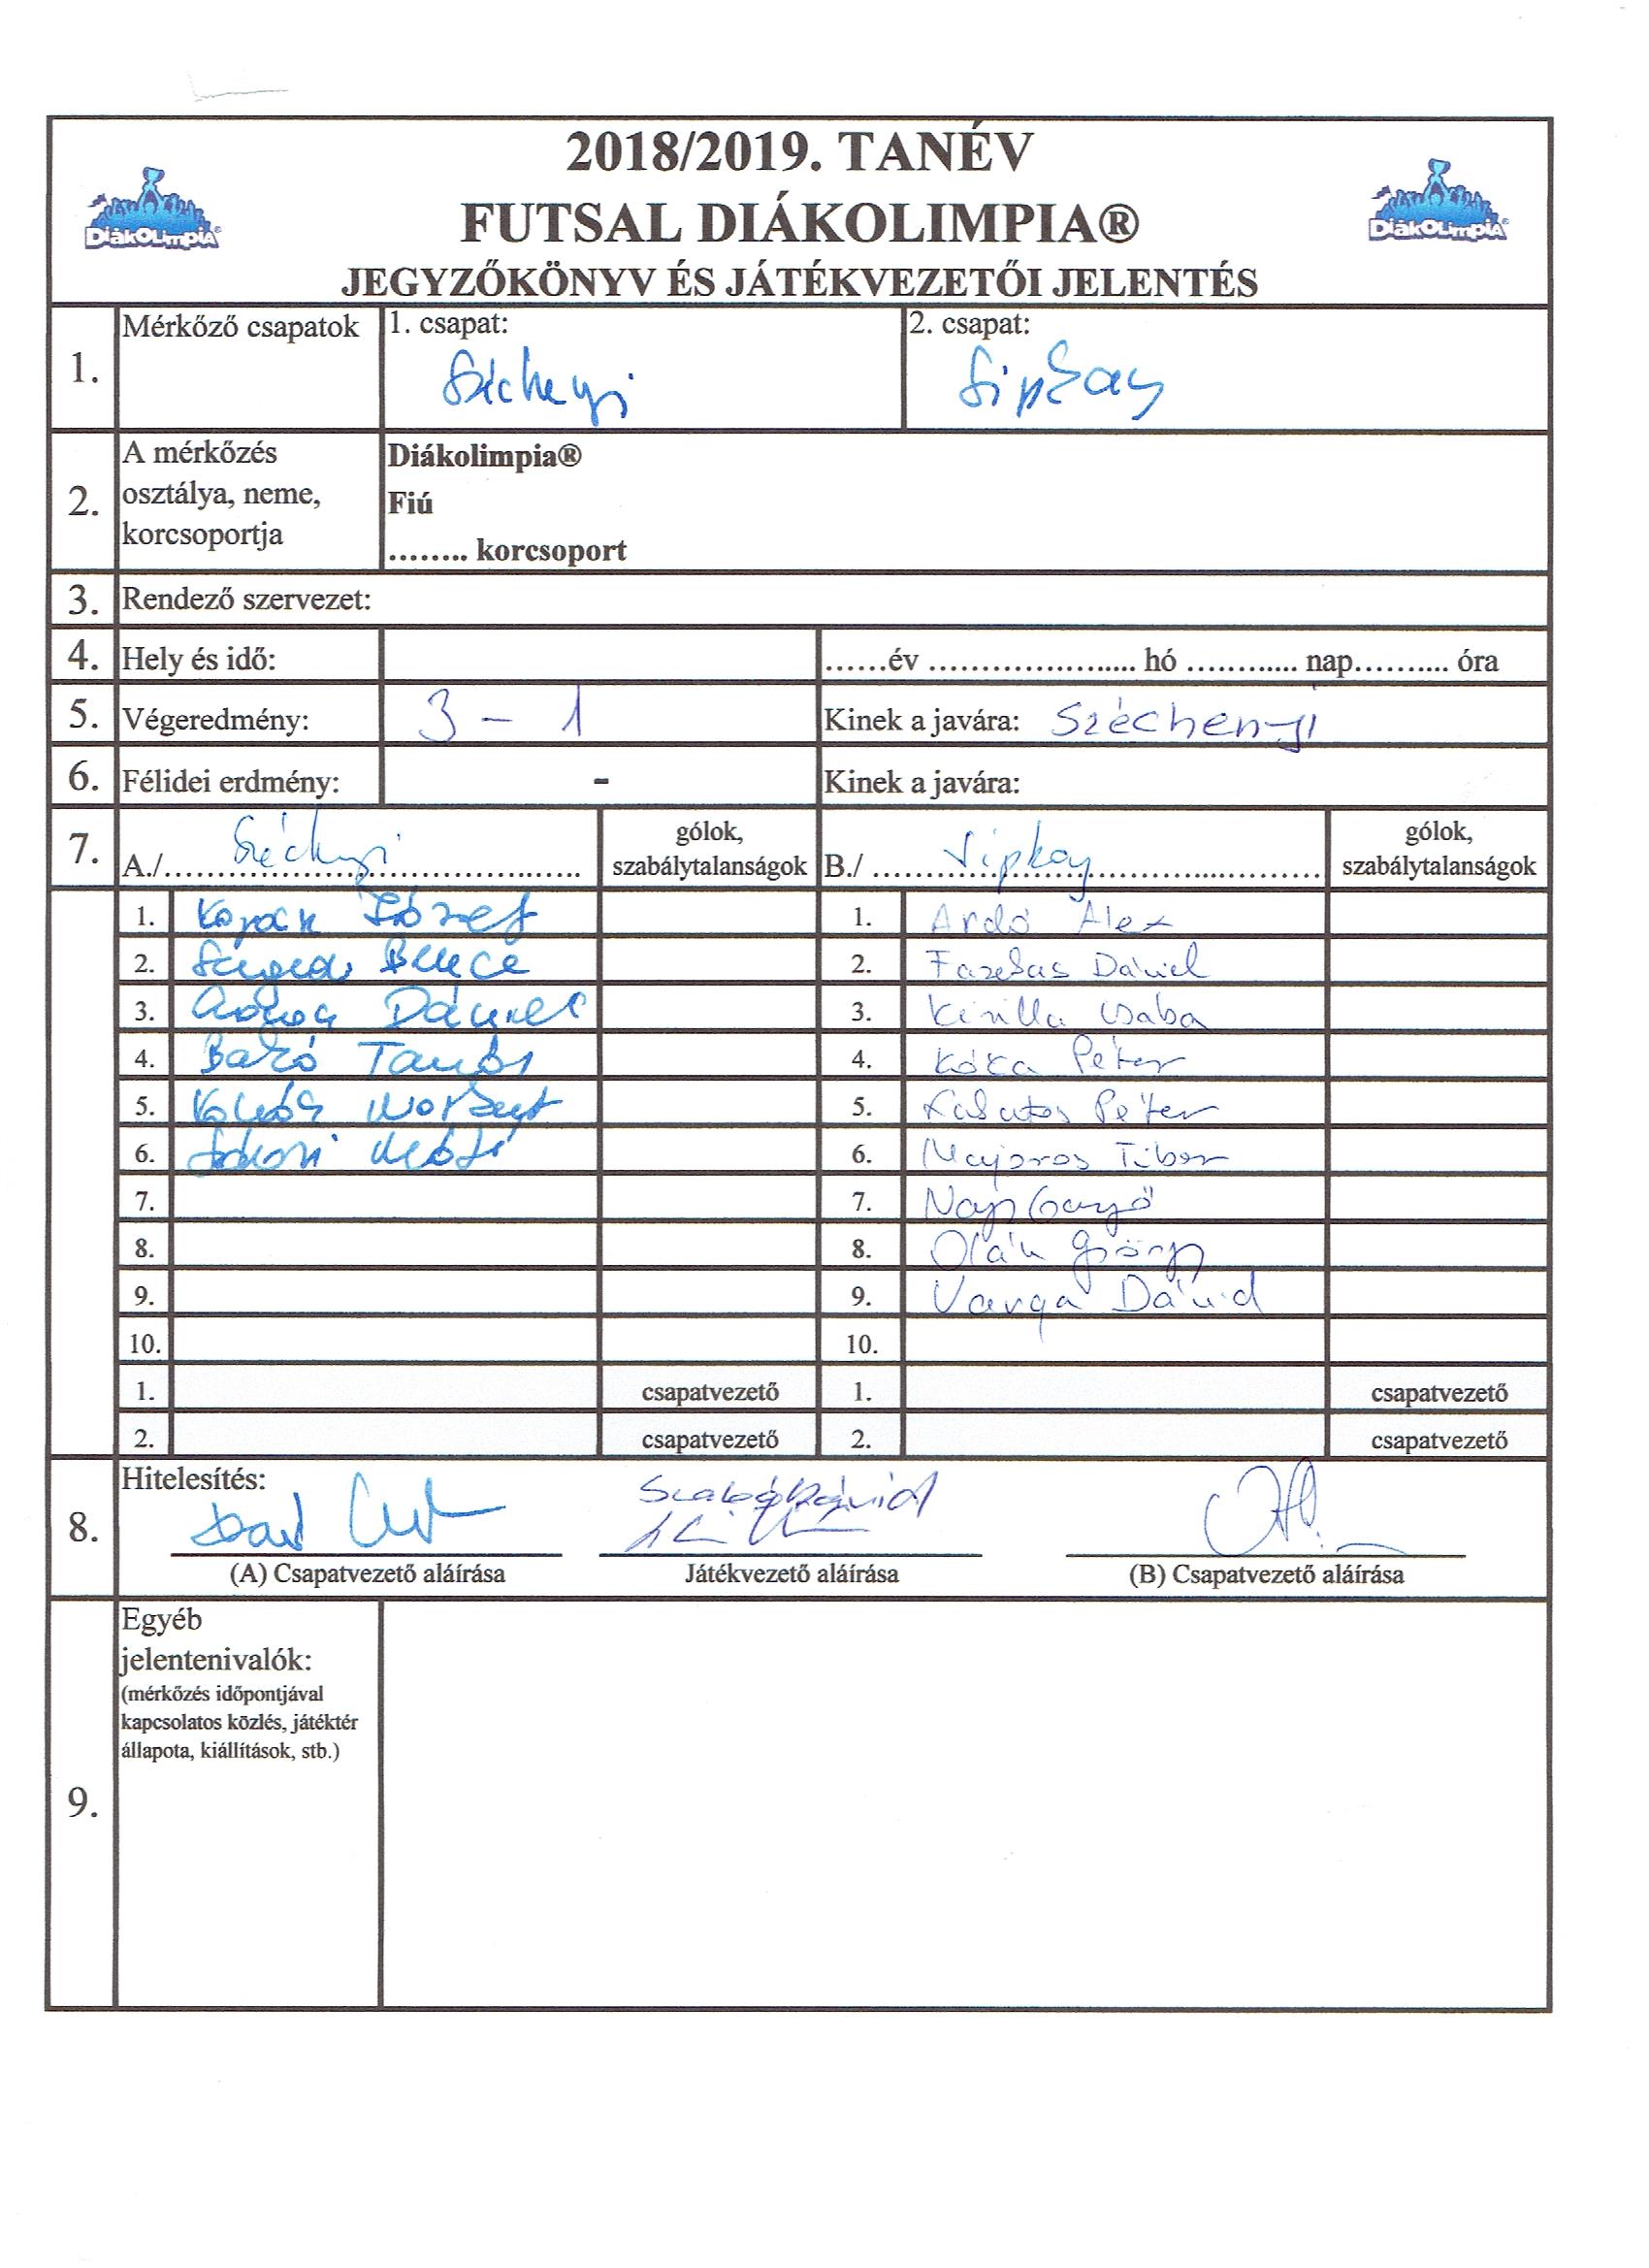 2018/2019. TANÉV
FUTSAL DIÁKOLIMPIA®
JEGYZŐKÖNYV ÉS JÁTÉKVEZETŐI JELENTÉS
DiákOLimpiA®
DiákOLimpiA®
1. Mérkőző csapatok 1. csapat: 2. csapat:
Széchenyi Sipkay
2. A mérkőzés osztálya, neme, korcsoportja
Diákolimpia®
Fiú
........ korcsoport
3. Rendező szervezet:
4. Hely és idő: ......év ........................ hó .............. nap.......... óra
5. Végeredmény: 3 - 1 Kinek a javára: Széchenyi
6. Félidei erdmény: - Kinek a javára:
7. A./ Széchenyi gólok, szabálytalanságok B./ Sipkay gólok, szabálytalanságok
1. József 1. Ardó Alex
2. Bence 2. Fazekas Dániel
3. Dániel 3. Kirilla Csaba
4. Tamás 4. Kóka Péter
5. Norbert 5. Péter
6. 6. Majoros Tibor
7. 7. Nagy
8. 8. Oláh György
9. 9. Varga Dávid
10. 10.
1. csapatvezető 1. csapatvezető
2. csapatvezető 2. csapatvezető
8. Hitelesítés:
Szabó Dávid
(A) Csapatvezető aláírása Játékvezető aláírása (B) Csapatvezető aláírása
9. Egyéb
jelentenivalók:
(mérkőzés időpontjával
kapcsolatos közlés, játéktér
állapota, kiállítások, stb.)